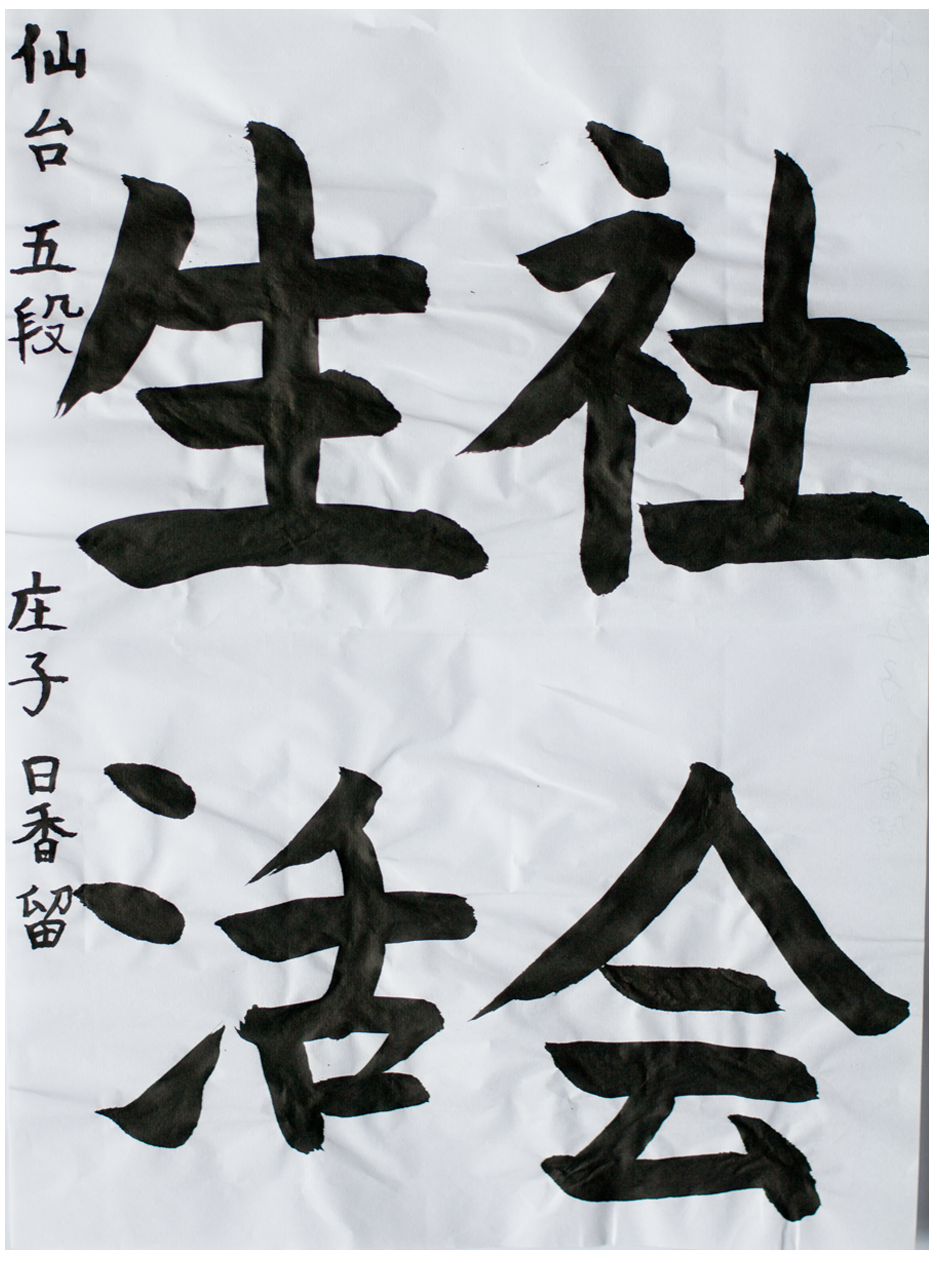 社会
生活
仙台 五段 庄子 日香留